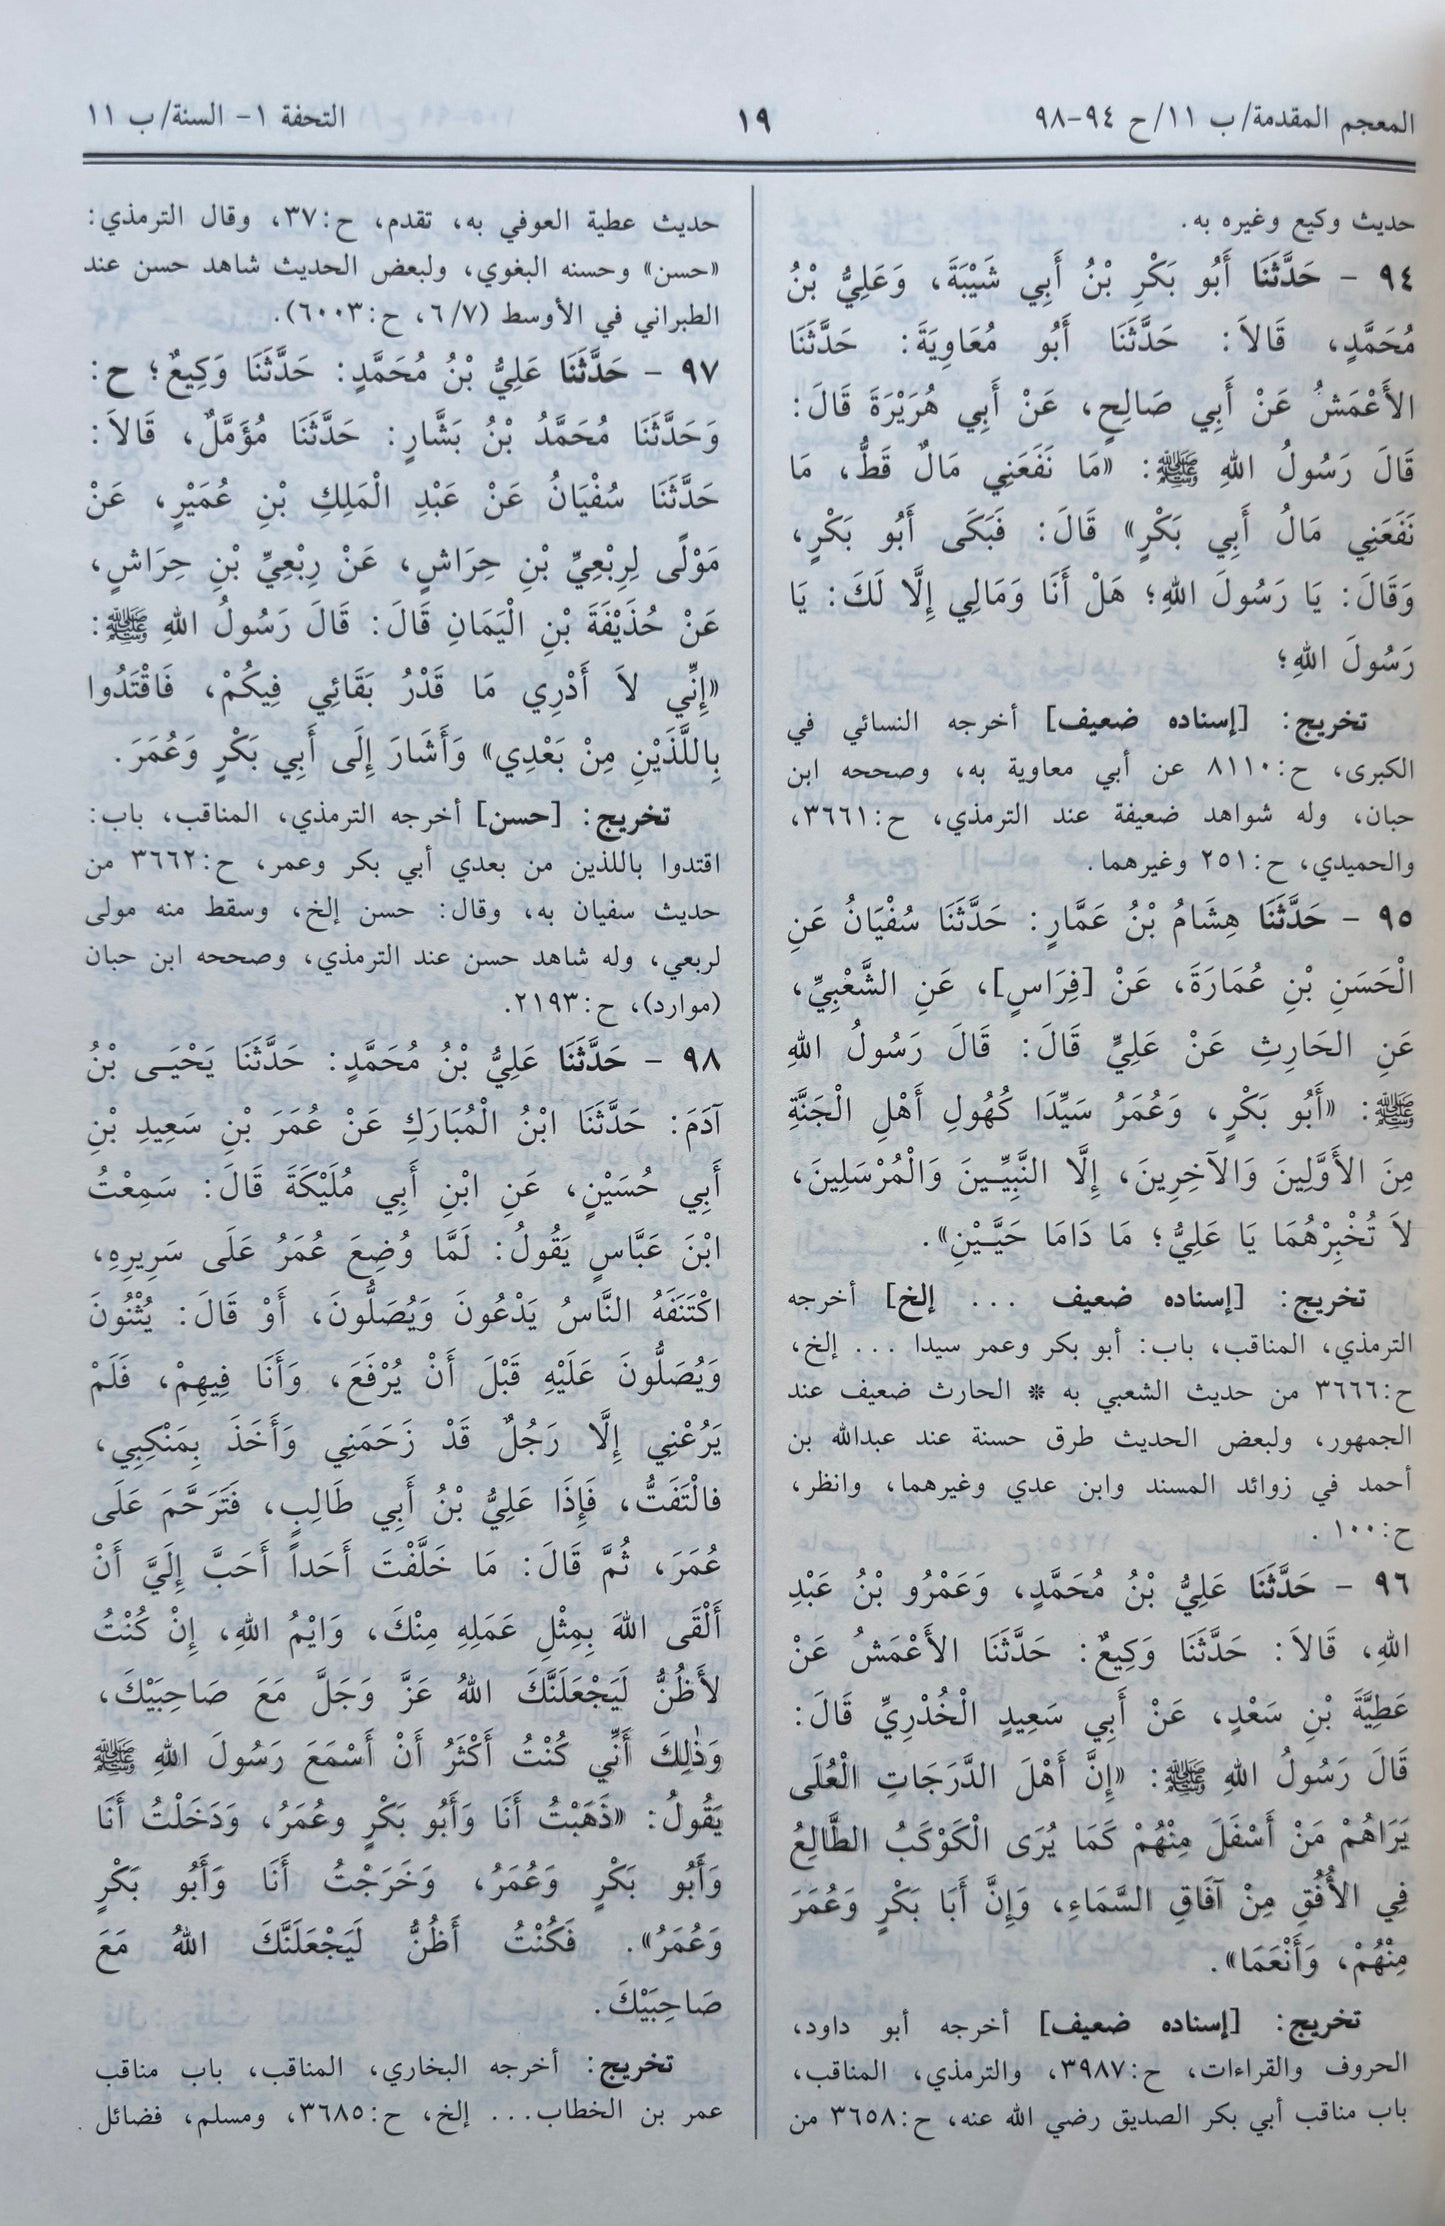 المعجم المقدمة/ ب ١١/ ح ٩٤-٩٨
١٩
التحفة ١- السنة/ ب ١١
حديث وكيع وغيره به.
٩٤ - حَدَّثَنَا أَبُو بَكْرِ بْنُ أَبِي شَيْبَةَ، وَعَلِيُّ بْنُ
مُحَمَّدٍ، قَالاَ: حَدَّثَنَا أَبُو مُعَاوِيَةَ: حَدَّثَنَا
الأَعْمَشُ عَنْ أَبِي صَالِحٍ، عَنْ أَبِي هُرَيْرَةَ قَالَ:
قَالَ رَسُولُ اللهِ ﷺ: «مَا نَفَعَنِي مَالٌ قَطُّ، مَا
نَفَعَنِي مَالُ أَبِي بَكْرٍ» قَالَ: فَبَكَى أَبُو بَكْرٍ،
وَقَالَ: يَا رَسُولَ اللهِ؛ هَلْ أَنَا وَمَالِي إِلَّا لَكَ: يَا
رَسُولَ اللهِ؛
تخريج: [إسناده ضعيف] أخرجه النسائي في
الكبرى، ح:٨١١٠ عن أبي معاوية به، وصححه ابن
حبان، وله شواهد ضعيفة عند الترمذي، ح:٣٦٦١،
والحميدي، ح:٢٥١ وغيرهما.
٩٥ - حَدَّثَنَا هِشَامُ بْنُ عَمَّارٍ: حَدَّثَنَا سُفْيَانُ عَنِ
الْحَسَنِ بْنِ عُمَارَةَ، عَنْ [فِرَاسٍ]، عَنِ الشَّعْبِيِّ،
عَنِ الحَارِثِ عَنْ عَلِيٍّ قَالَ: قَالَ رَسُولُ اللهِ
ﷺ: «أَبُو بَكْرٍ، وَعُمَرُ سَيِّدَا كُهُولِ أَهْلِ الْجَنَّةِ
مِنَ الأَوَّلِينَ وَالآخِرِينَ، إِلَّا النَّبِيِّينَ وَالْمُرْسَلِينَ،
لاَ تُخْبِرْهُمَا يَا عَلِيُّ؛ مَا دَامَا حَيَّيْنِ».
تخريج: [إسناده ضعيف ... إلخ] أخرجه
الترمذي، المناقب، باب: أبو بكر وعمر سيدا ... إلخ،
ح:٣٦٦٦ من حديث الشعبي به * الحارث ضعيف عند
الجمهور، ولبعض الحديث طرق حسنة عند عبدالله بن
أحمد في زوائد المسند وابن عدي وغيرهما، وانظر،
ح:١٠٠ .
٩٦ - حَدَّثَنَا عَلِيُّ بْنُ مُحَمَّدٍ، وَعَمْرُو بْنُ عَبْدِ
اللهِ، قَالاَ: حَدَّثَنَا وَكِيعٌ: حَدَّثَنَا الأَعْمَشُ عَنْ
عَطِيَّةَ بْنِ سَعْدٍ، عَنْ أَبِي سَعِيدٍ الْخُدْرِيِّ قَالَ:
قَالَ رَسُولُ اللهِ ﷺ: «إِنَّ أَهْلَ الدَّرَجَاتِ الْعُلَى
يَرَاهُمْ مَنْ أَسْفَلَ مِنْهُمْ كَمَا يُرَى الْكَوْكَبُ الطَّالِعُ
فِي الأُفُقِ مِنْ آفَاقِ السَّمَاءِ، وَإِنَّ أَبَا بَكْرٍ وَعُمَرَ
مِنْهُمْ، وَأَنْعَمَا».
تخريج: [إسناده ضعيف] أخرجه أبو داود،
الحروف والقراءات، ح:٣٩٨٧، والترمذي، المناقب،
باب مناقب أبي بكر الصديق رضي الله عنه، ح:٣٦٥٨ من
حديث عطية العوفي به، تقدم، ح:٣٧، وقال الترمذي:
«حسن» وحسنه البغوي، ولبعض الحديث شاهد حسن عند
الطبراني في الأوسط (٦/٧، ح:٦٠٠٣).
٩٧ - حَدَّثَنَا عَلِيُّ بْنُ مُحَمَّدٍ: حَدَّثَنَا وَكِيعٌ؛ ح:
وَحَدَّثَنَا مُحَمَّدُ بْنُ بَشَّارٍ: حَدَّثَنَا مُؤَمَّلٌ، قَالاَ:
حَدَّثَنَا سُفْيَانُ عَنْ عَبْدِ الْمَلِكِ بْنِ عُمَيْرٍ، عَنْ
مَوْلًى لِرِبْعِيِّ بْنِ حِرَاشٍ، عَنْ رِبْعِيِّ بْنِ حِرَاشٍ،
عَنْ حُذَيْفَةَ بْنِ الْيَمَانِ قَالَ: قَالَ رَسُولُ اللهِ ﷺ:
«إِنِّي لاَ أَدْرِي مَا قَدْرُ بَقَائِي فِيكُمْ، فَاقْتَدُوا
بِاللَّذَيْنِ مِنْ بَعْدِي» وَأَشَارَ إِلَى أَبِي بَكْرٍ وَعُمَرَ.
تخريج: [حسن] أخرجه الترمذي، المناقب، باب:
اقتدوا باللذين من بعدي أبي بكر وعمر، ح:٣٦٦٢ من
حديث سفيان به، وقال: حسن إلخ، وسقط منه مولى
لربعي، وله شاهد حسن عند الترمذي، وصححه ابن حبان
(موارد)، ح:٢١٩٣.
٩٨ - حَدَّثَنَا عَلِيُّ بْنُ مُحَمَّدٍ: حَدَّثَنَا يَحْيَـى بْنُ
آدَمَ: حَدَّثَنَا ابْنُ الْمُبَارَكِ عَنْ عُمَرَ بْنِ سَعِيدِ بْنِ
أَبِي حُسَيْنٍ، عَنِ ابْنِ أَبِي مُلَيْكَةَ قَالَ: سَمِعْتُ
ابْنَ عَبَّاسٍ يَقُولُ: لَمَّا وُضِعَ عُمَرُ عَلَى سَرِيرِهِ،
اكْتَنَفَهُ النَّاسُ يَدْعُونَ وَيُصَلُّونَ، أَوْ قَالَ: يُثْنُونَ
وَيُصَلُّونَ عَلَيْهِ قَبْلَ أَنْ يُرْفَعَ، وَأَنَا فِيهِمْ، فَلَمْ
يَرُعْنِي إِلَّا رَجُلٌ قَدْ زَحَمَنِي وَأَخَذَ بِمَنْكِبِي،
فالْتَفَتُّ، فَإِذَا عَلِيُّ بْنُ أَبِي طَالِبٍ، فَتَرَحَّمَ عَلَى
عُمَرَ، ثُمَّ قَالَ: مَا خَلَّفْتَ أَحَداً أَحَبَّ إِلَيَّ أَنْ
أَلْقَى اللهَ بِمِثْلِ عَمَلِهِ مِنْكَ، وَايْمُ اللهِ، إِنْ كُنْتُ
لأَظُنُّ لَيَجْعَلَنَّكَ اللهُ عَزَّ وَجَلَّ مَعَ صَاحِبَيْكَ،
وَذٰلِكَ أَنِّي كُنْتُ أَكْثَرُ أَنْ أَسْمَعَ رَسُولَ اللهِ ﷺ
يَقُولُ: «ذَهَبْتُ أَنَا وَأَبُو بَكْرٍ وعُمَرُ، وَدَخَلْتُ أَنَا
وَأَبُو بَكْرٍ وَعُمَرُ، وَخَرَجْتُ أَنَا وَأَبُو بَكْرٍ
وَعُمَرُ». فَكُنْتُ أَظُنُّ لَيَجْعَلَنَّكَ اللهُ مَعَ
صَاحِبَيْكَ.
تخريج: أخرجه البخاري، المناقب، باب مناقب
عمر بن الخطاب... إلخ، ح:٣٦٨٥، ومسلم، فضائل